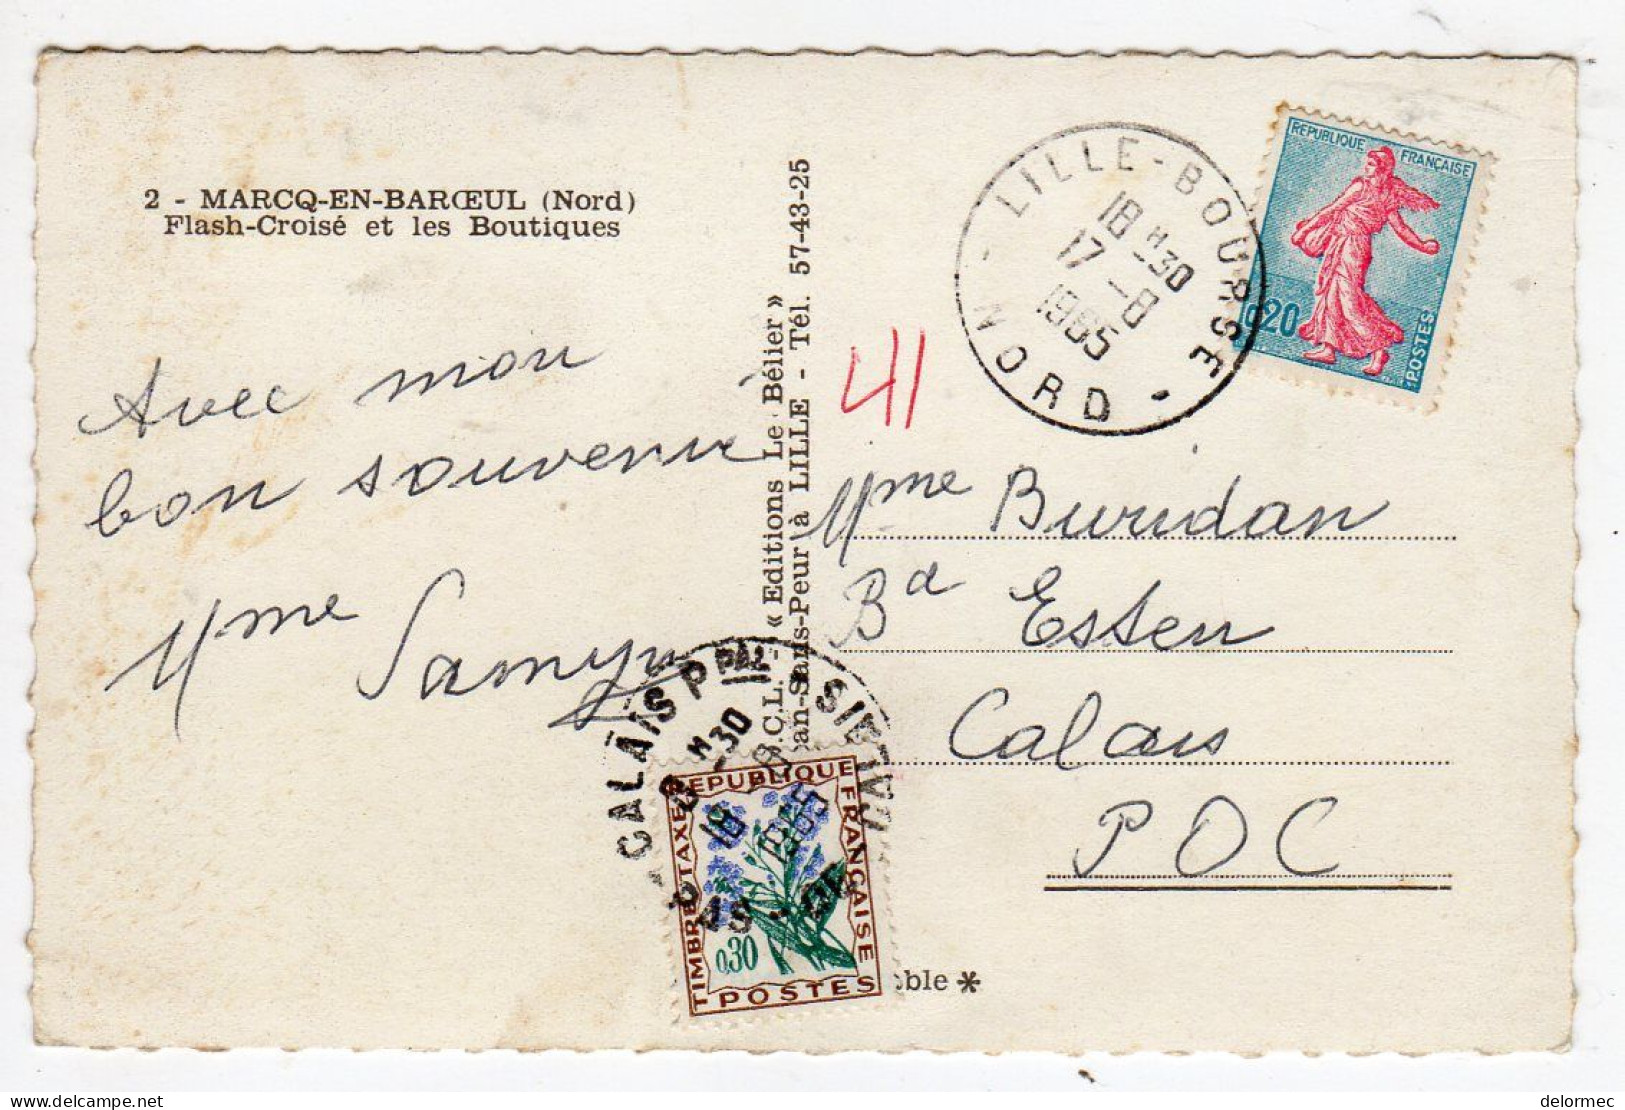 2 - MARCQ-EN-BARŒUL (Nord)
Flash-Croisé et les Boutiques
Avec mon
bon souvenir
Mme Samyn
« Editions Le Bélier »
Sans-Peur à LILLE - Tél. 57-43-25
LILLE-BOURSE
18 H 30
17 - 8
1965
NORD
REPUBLIQUE FRANÇAISE
0,20
POSTES
41
Mme Buridan
Bd Esten
Calais
POC
CALAIS PPAL
8 H 30
18
1965
REPUBLIQUE FRANÇAISE
TIMBRE TAXE
0,30
POSTES
ble *
delormec